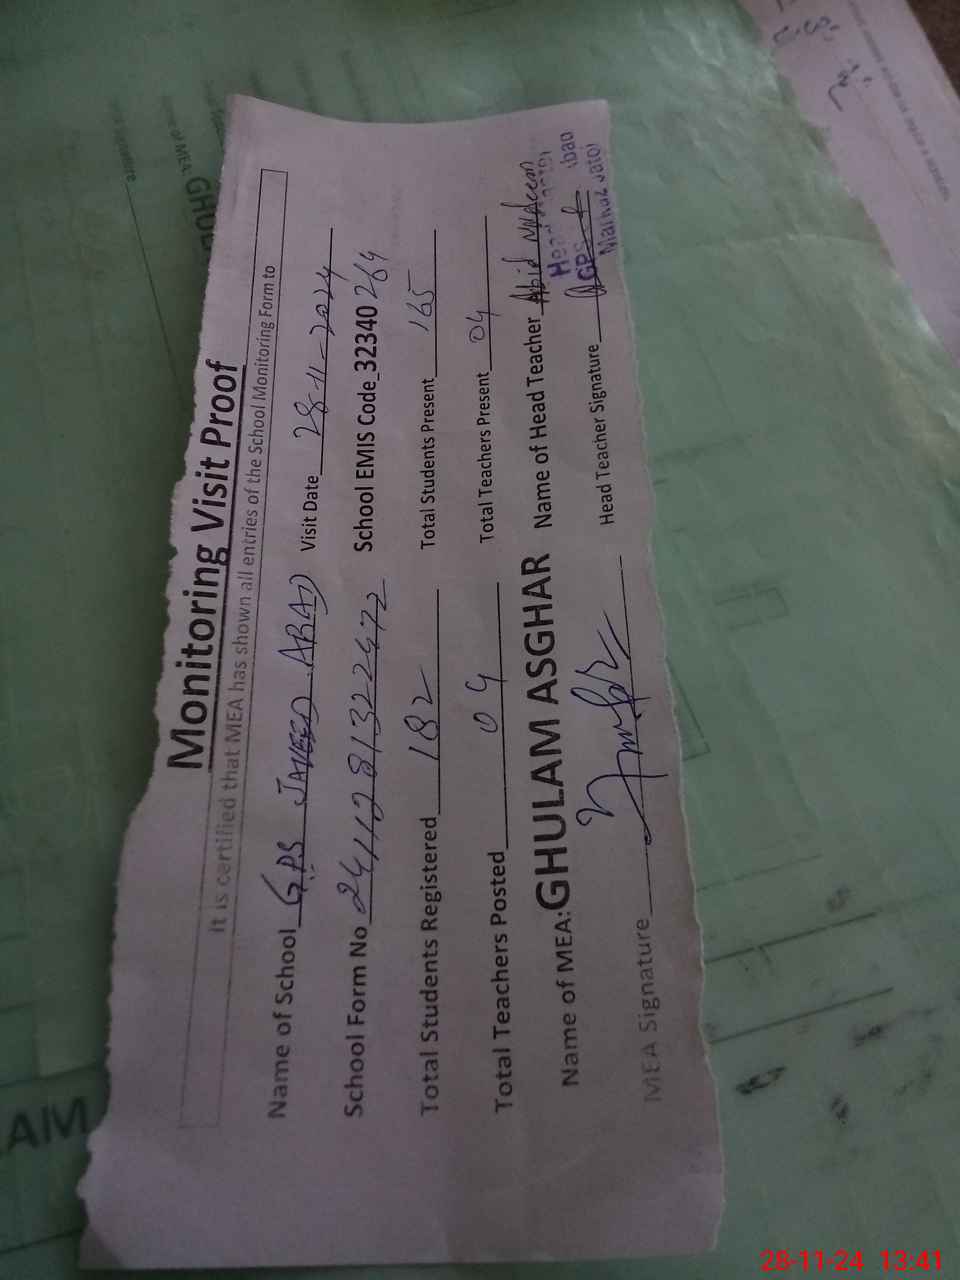 Monitoring Visit Proof
It is certified that MEA has shown all entries of the School Monitoring Form to
Name of School GPS JAVEED ABAD Visit Date 28-11-2024
School Form No 241128132472 School EMIS Code_32340 264
Total Students Registered 182 Total Students Present 165
Total Teachers Posted 04 Total Teachers Present 04
Name of MEA: GHULAM ASGHAR Name of Head Teacher Abid
MEA Signature Head Teacher Signature
Head
GPS
AM
28-11-24 13:41